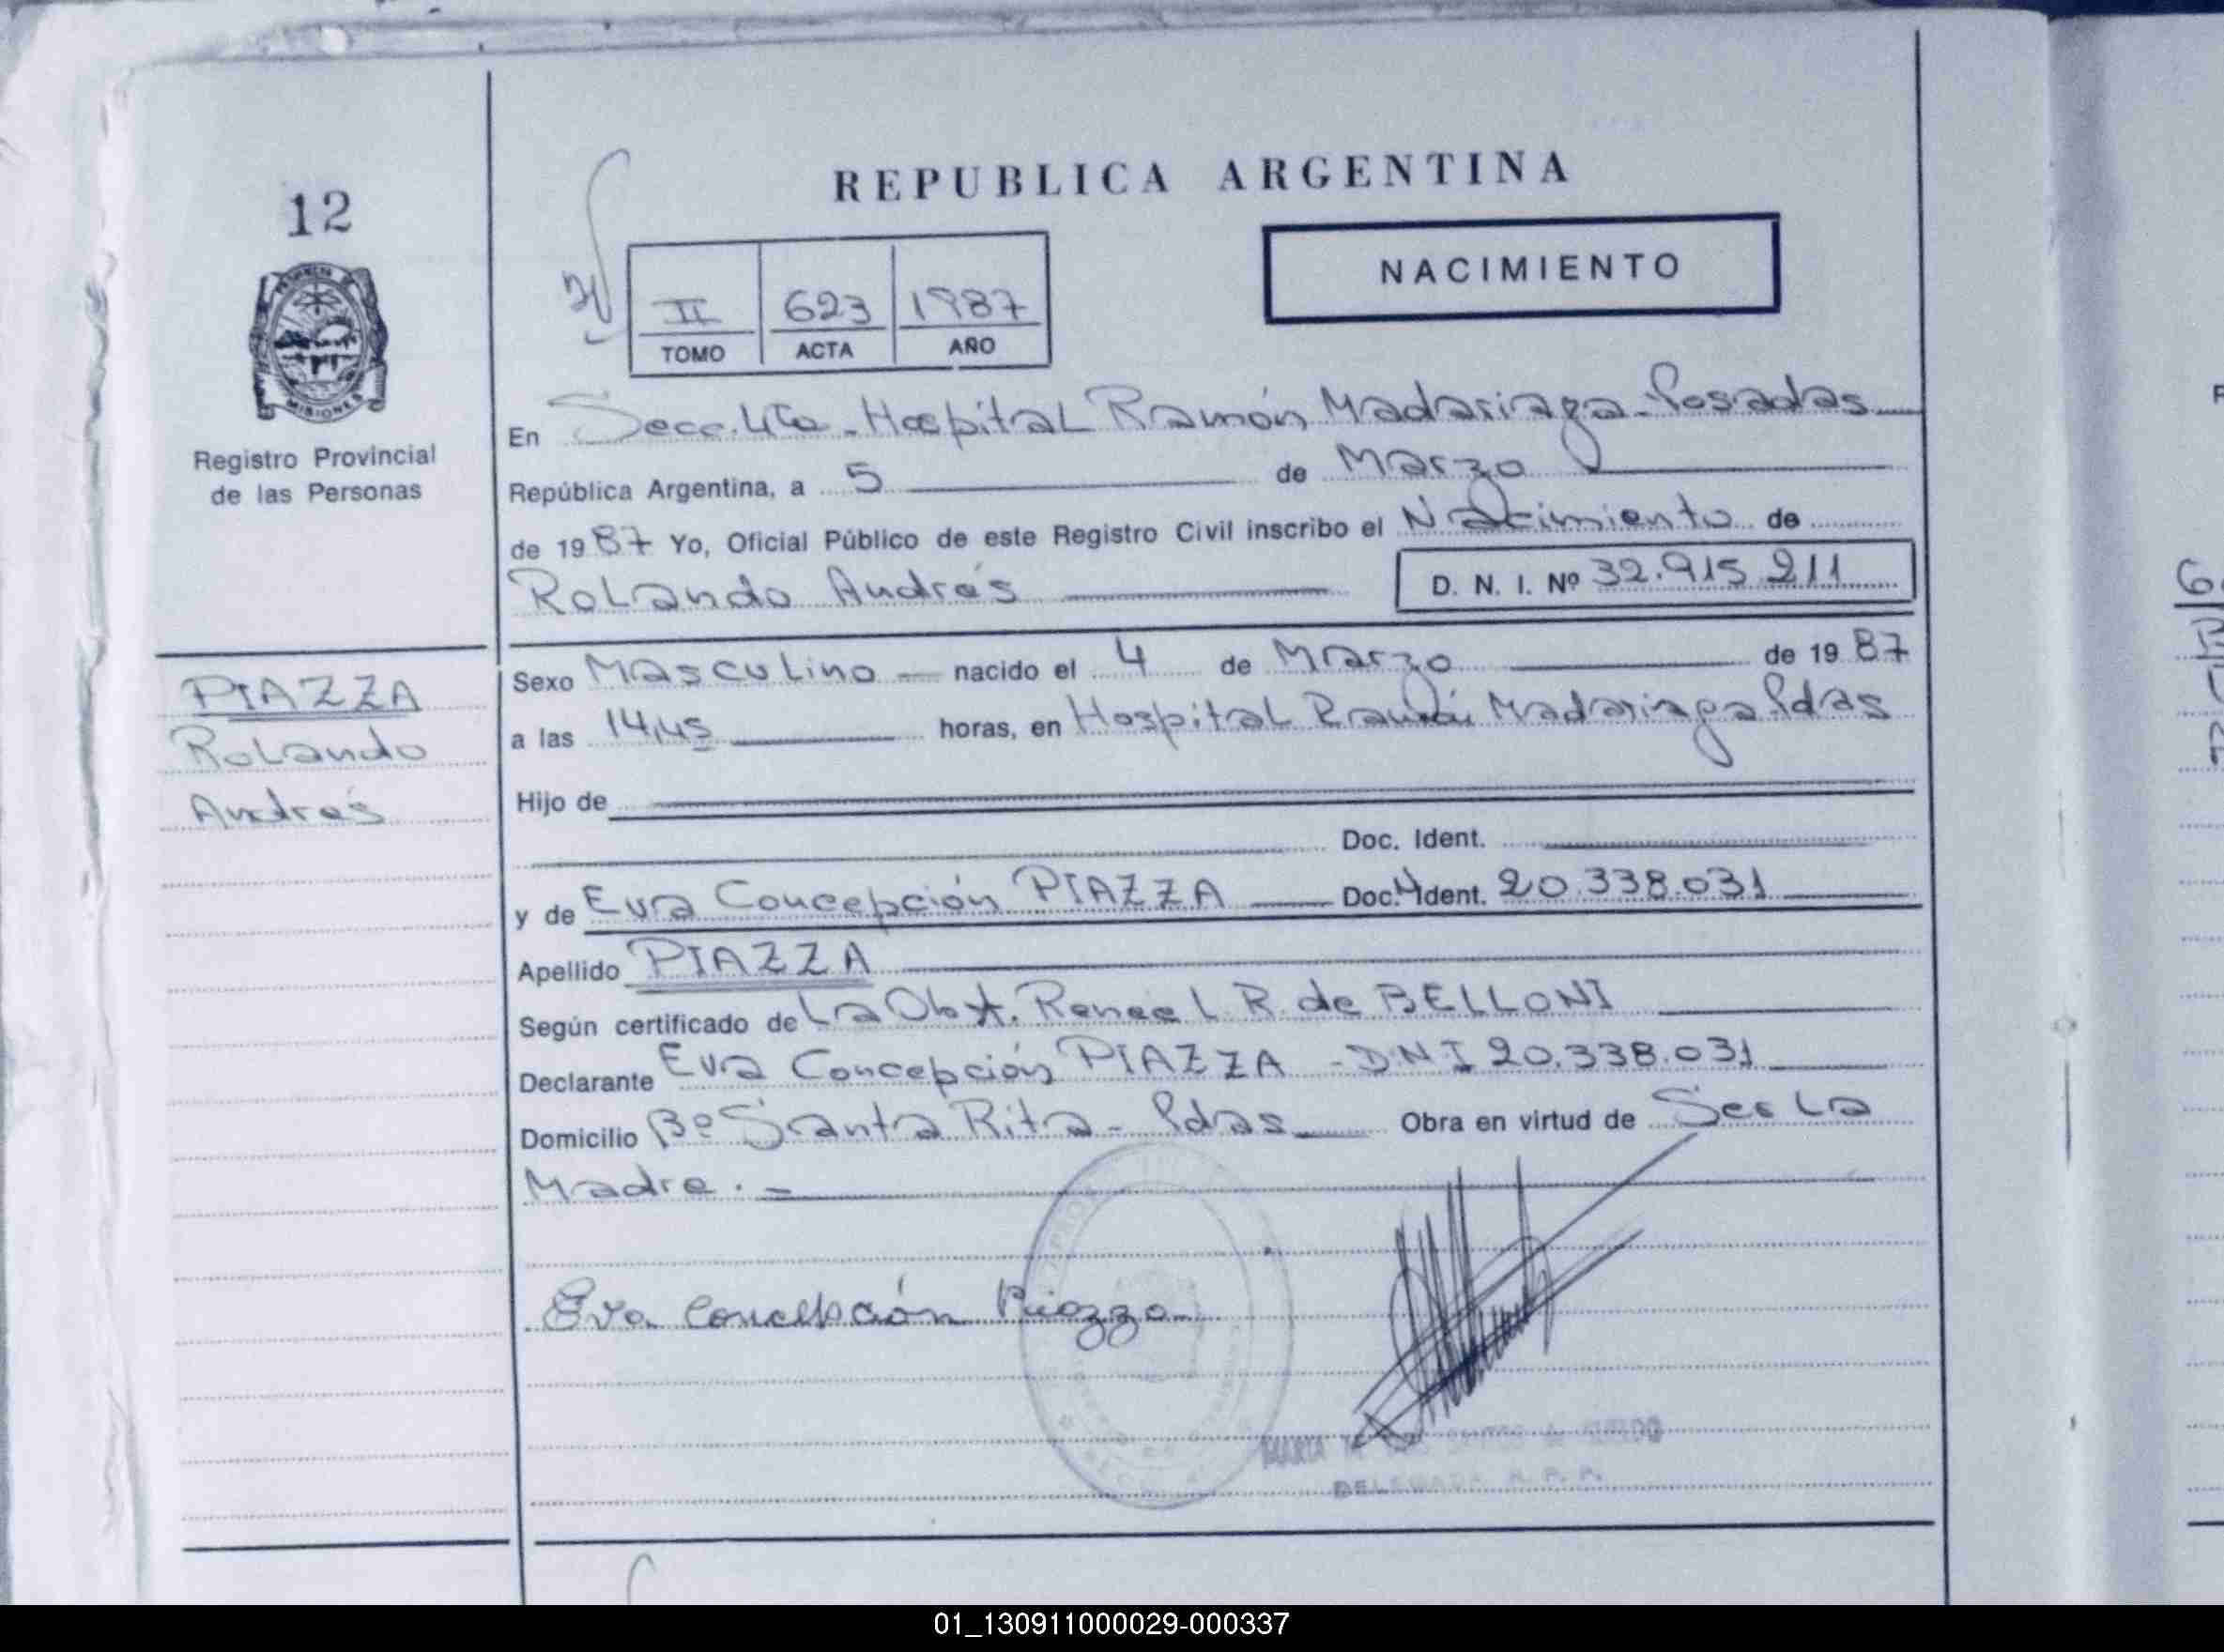 12
MISIONES
Registro Provincial
de las Personas
PIAZZA
Rolando
Andrés
REPUBLICA ARGENTINA
II 623 1987
TOMO ACTA AÑO
NACIMIENTO
En Secc. 4ta - Hospital Ramón Madariaga - Posadas
República Argentina, a 5 de Marzo
de 1987 Yo, Oficial Público de este Registro Civil inscribo el Nacimiento de
Rolando Andrés D. N. I. Nº 32.915.211
Sexo Masculino nacido el 4 de Marzo de 1987
a las 14,45 horas, en Hospital Ramón Madariaga Pdas
Hijo de
Doc. Ident.
y de Eva Concepción PIAZZA Doc. Ident. 20.338.031
Apellido PIAZZA
Según certificado de La Obst. Renee L R. de BELLONI
Declarante Eva Concepción PIAZZA - DNI 20.338.031
Domicilio Bº Santa Rita - Pdas Obra en virtud de Ser La
Madre . -
Eva Concepción Piazza
MARIA
DELEGADA R. P. P.
01_130911000029-000337